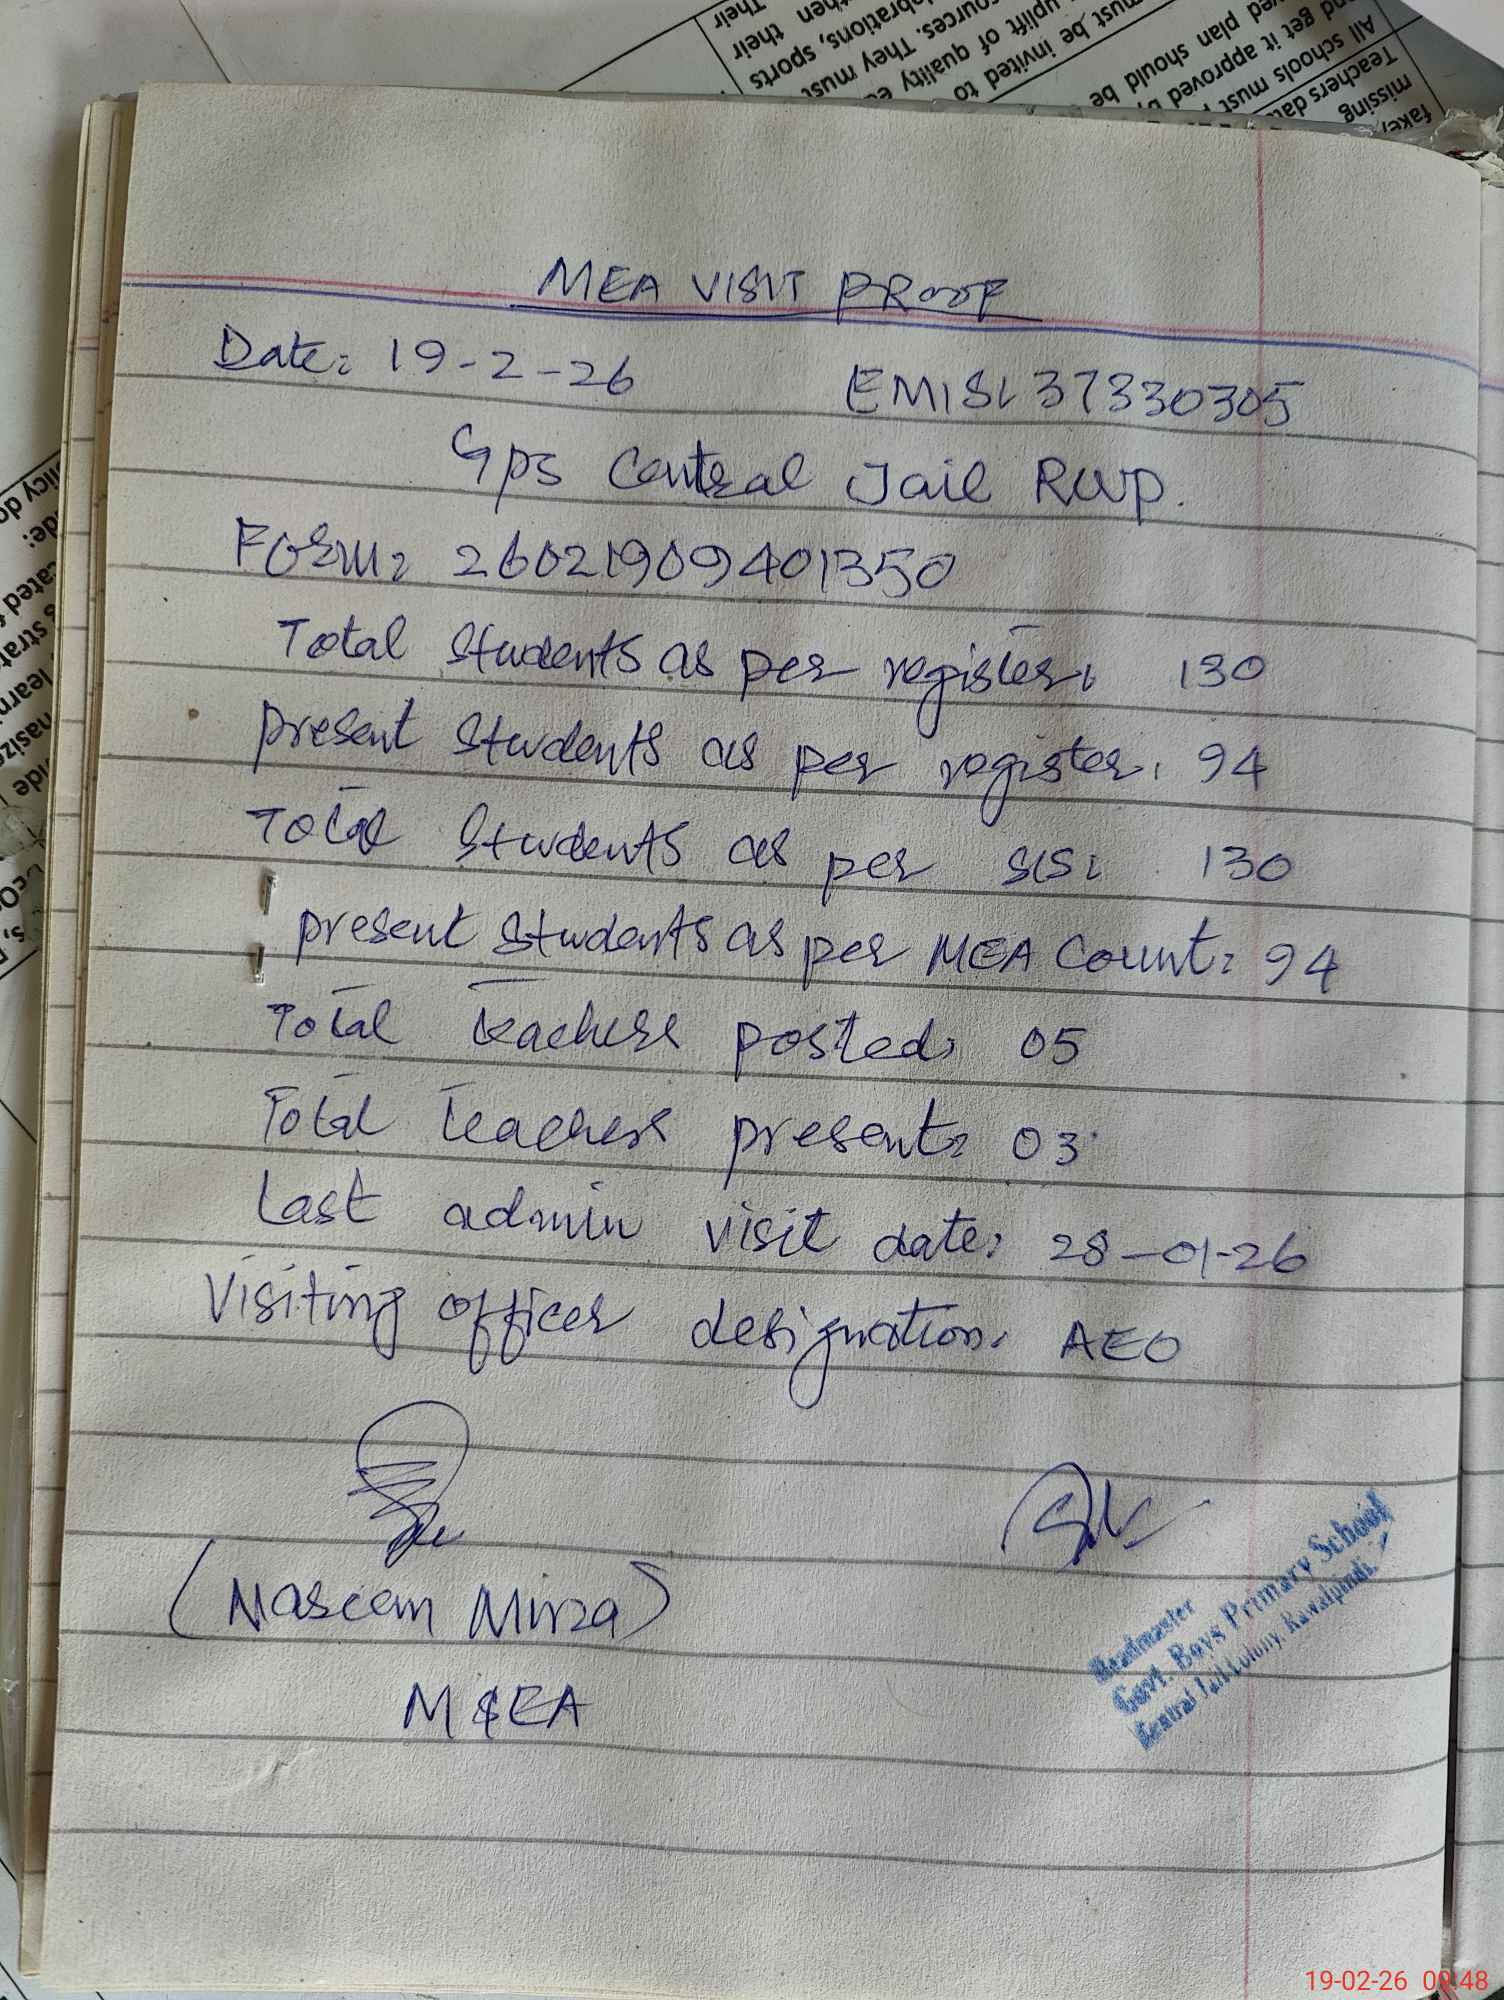 MEA VISIT PROOF
Date: 19-2-26 EMIS: 37330305
GPS Central Jail RWP.
Form: 26021909401350
Total Students as per register: 130
present students as per register: 94
Total Students as per SIS: 130
present students as per MEA Count: 94
Total teachers posted: 05
Total teachers present: 03
Last admin visit date: 28-01-26
Visiting officer designation: AEO
(Naseem Mirza)
M&EA
Headmaster
Govt. Boys Primary School
Central Jail Colony, Rawalpindi.
fake,
missing
Teachers
All schools must
and get it approved
plan should be
must be invited to
uplift of quality
They must
sports
then
their
Their
19-02-26 09:48